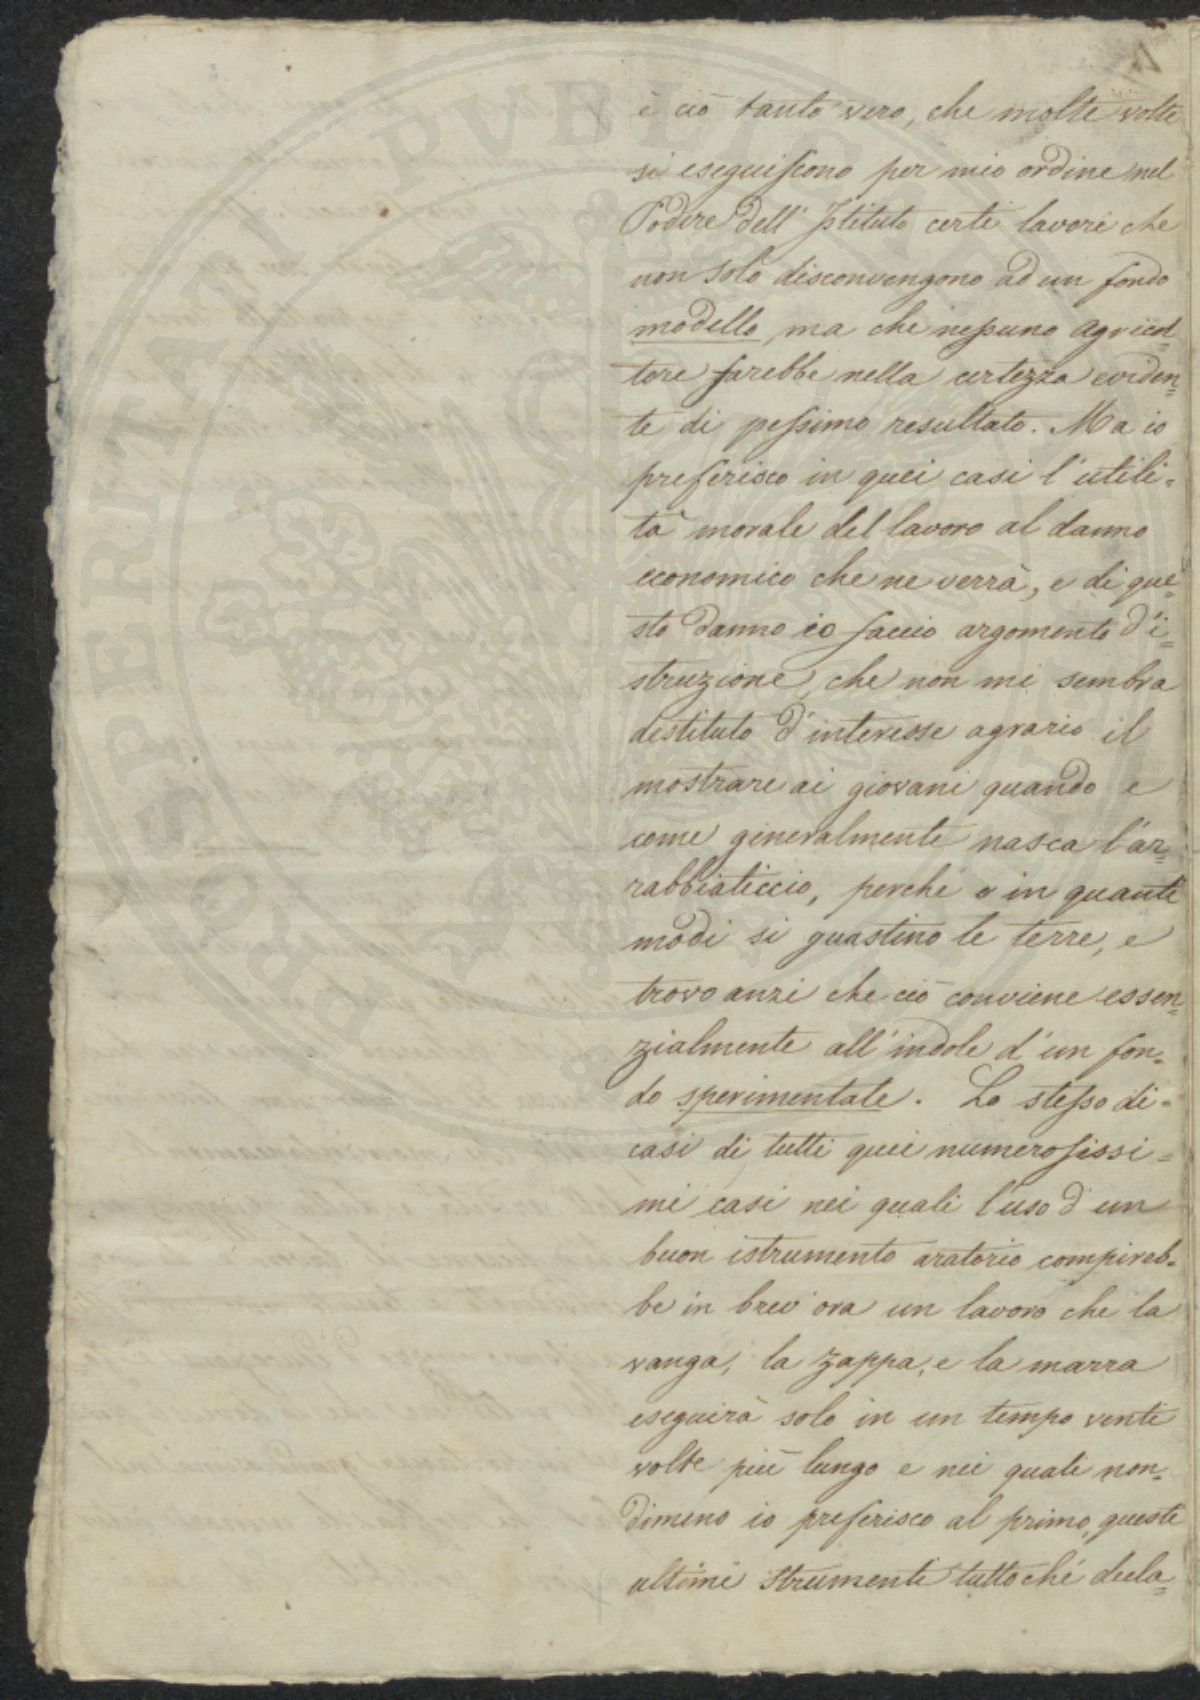 è ciò tanto vero, che molte volte
si eseguiscono per mio ordine nel
Podere dell' Istituto certi lavori che
non solo disconvengono ad un fondo
modello, ma che nessuno agricol=
tore farebbe nella certezza eviden=
te di pessimo resultato. Ma io
preferisco in quei casi l'utili=
tà morale del lavoro al danno
economico che ne verrà, e di que=
sto danno io faccio argomento d'i=
struzione, che non mi sembra
destituto d'interesse agrario il
mostrare ai giovani quando e
come generalmente nasca l'ar=
rabbiaticcio, perché e in quanti
modi si guastino le terre, e
trovo anzi che ciò conviene essen=
zialmente all'indole d'un fon=
do sperimentale. Lo stesso di=
casi di tutti quei numerosissi=
mi casi nei quali l'uso d'un
buon istrumento aratorio compireb=
be in brev'ora un lavoro che la
vanga, la zappa, e la marra
eseguirà solo in un tempo venti
volte più lungo e nei quali non=
dimeno io preferisco al primo, questi
ultimi strumenti tuttoché decla=
PROSPERITATI PVBLICAE